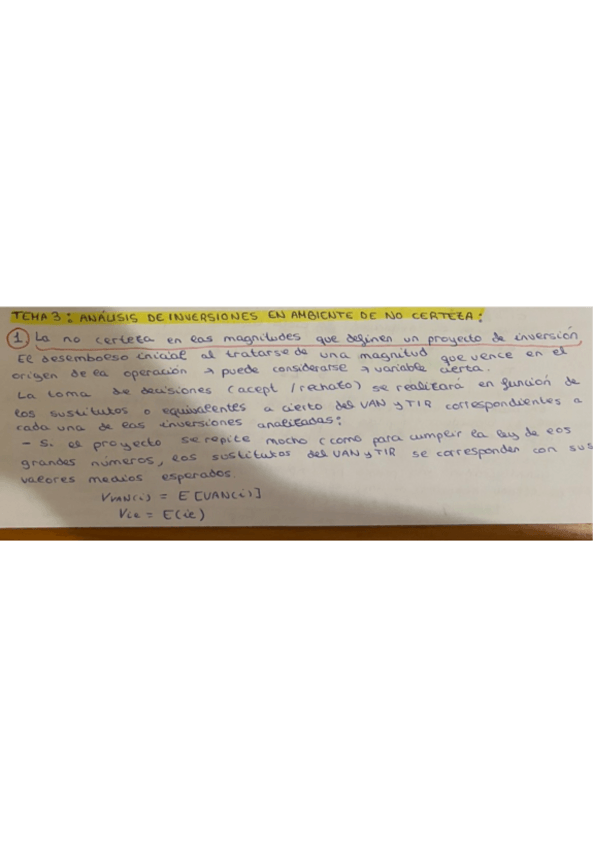 TEMA 3: ANÁLISIS DE INVERSIONES EN AMBIENTE DE NO CERTEZA:
1. La no certeza en las magnitudes que definen un proyecto de inversión
El desembolso inicial al tratarse de una magnitud que vence en el
origen de la operación → puede considerarse → variable cierta.
La toma de decisiones (acept / rechazo) se realizará en función de
los sustitutos o equivalentes a cierto del VAN y TIR correspondientes a
cada una de las inversiones analizadas:
- Si el proyecto se repite mucho (como para cumplir la ley de los
grandes números, los sustitutos del VAN y TIR se corresponden con sus
valores medios esperados.
V VAN(i) = E [VAN(i)]
V ie = E(ie)